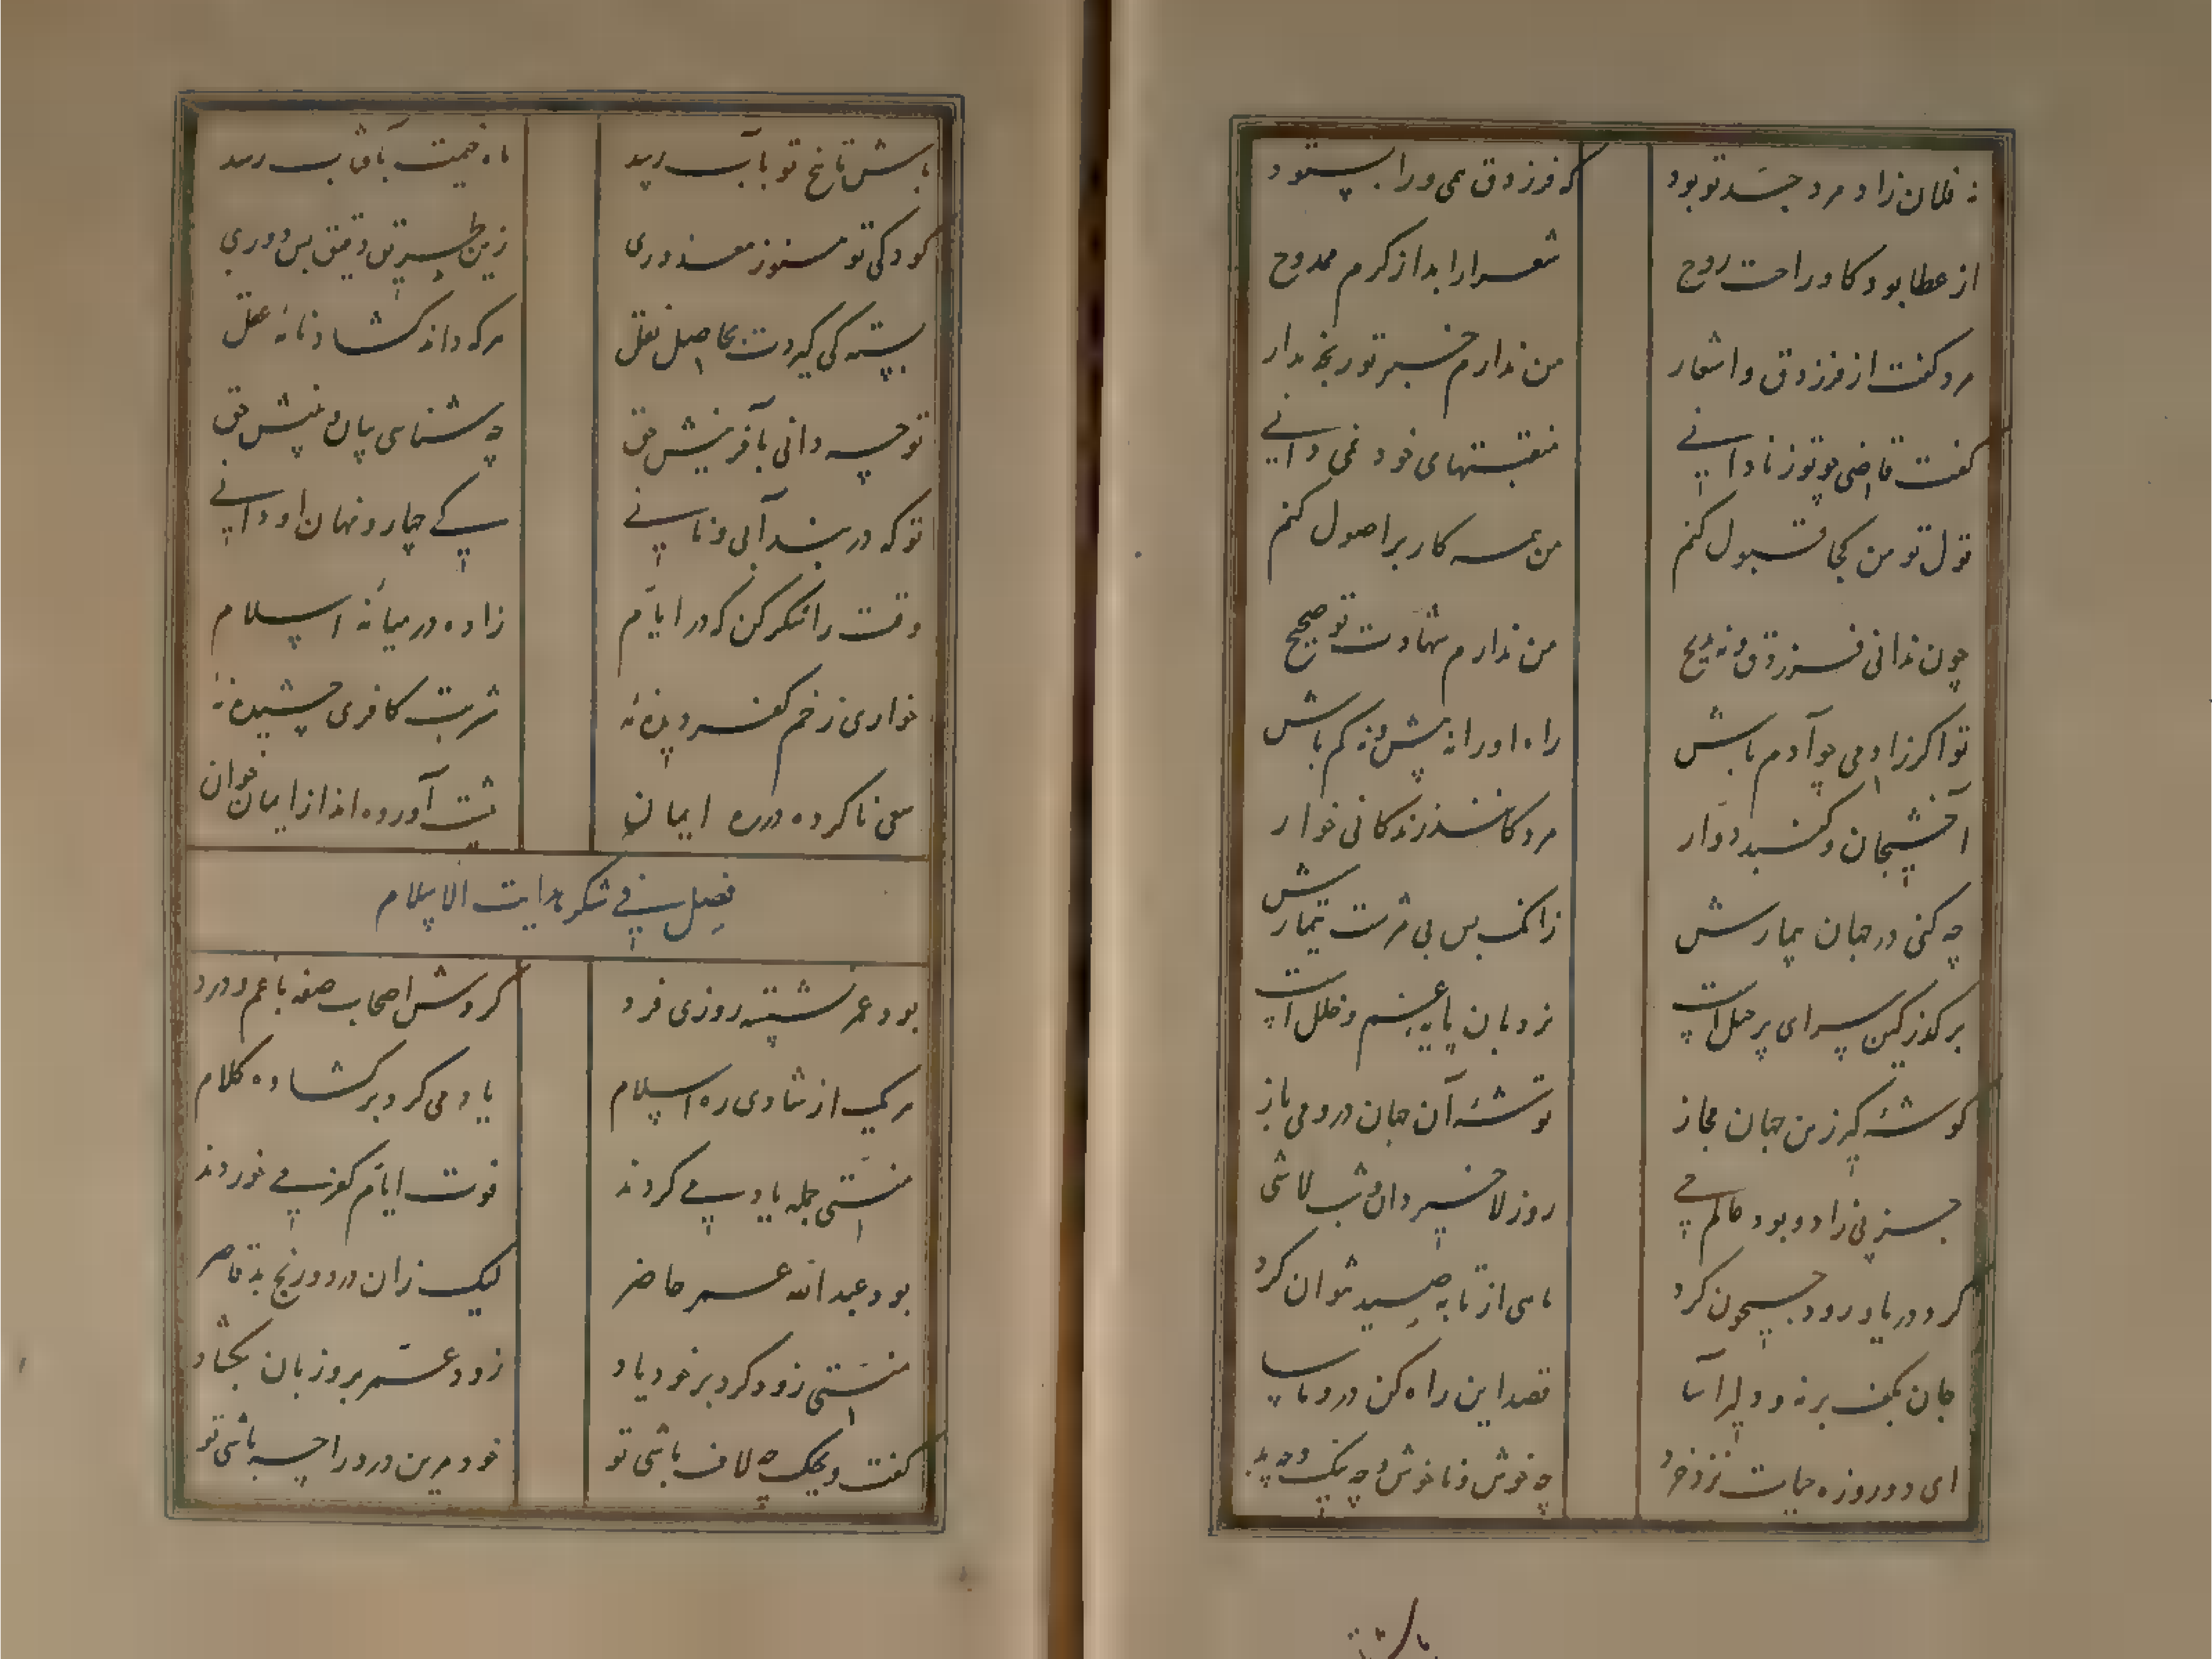 نه فلان زاد مرد جد تو بود که فرزدق همی ورا بستود
از عطا بود کاو راحت روح شعرا را بد از کرم ممدوح
مرد گفت از فرزدق و اشعار من ندارم خبر تو رنجه مدار
گفت قاضی چو تو ز نادانی منقبتهای خود نمی دانی
قول تو من کجا قبول کنم من همه کار بر اصول کنم
چون ندانی فرزدق و نه مدیح من ندارم شهادت تو صحیح
تو اگر زادمی چو آدم باش راه او را نه بیش و نه کم باش
آخشیجان و گنبد دوار مردگانند زندگانی خوار
چه کنی در جهان بیمارش زانکه بس بی مزست تیمارش
برگذر کین سرای پر حیل است نردبان پایه عزم و خلل است
گوشه گیر زین جهان مجاز توشه آن جهان درو می باز
روز لا خیر دان و شب لاشی
گرد دریا و رود جیحون گرد ماهی از تابه صید نتوان کرد
جان بکف برنه و دلیر آسا قصد این راه کن درو ماسا
ای دو روزه حیات نزد خرد چه خوش و ناخوش و چه نیک و چه بد
باش تا رخ تو بآب رسد ماه خیمت بآفتاب رسد
کودکی تو هنوز معذوری زین طریق دقیق بس دوری
بسته کی گیردت بحاصل نقل هرکه داند گشاد نامه عقل
تو چه دانی بآفرینش حق چه شناسی بیان و بینش حق
تو که در بند آبی و نانی کی چهار و نهان او دانی
وقت را شکر کن که در ایام زاده در میانه اسلام
خواری زخم کفر دیده نه شربت کافری چشیده نه
سعی ناکرده در ره ایمان شت آورده اند از ایمان خوان
فصل فی شکر هدایت الاسلام
بود عمر نشسته روزی فرد گردش اصحاب صفه با غم و درد
هر یک از شادی ره اسلام یاد می کرد برگشاده کلام
منتی جمله یاد می کردند فوت ایام کفر می خوردند
بود عبدالله عمر حاضر لیک زان درد و رنج بد قاصر
منتی زود کرد بر خود یاد زود عمر برو زبان بگشاد
گفت ویحک چه لاف باشی تو خود مرین درد را چه باشی تو